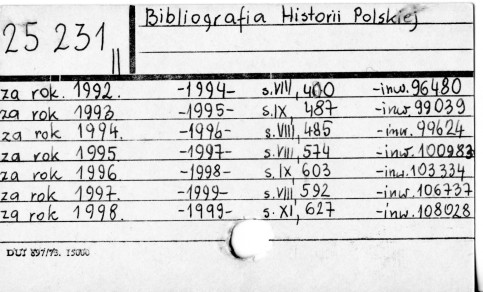 Bibliografia Historii Polskiej
25 231 II
za rok. 1992. -1994- s.VIII, 400 -inw. 96480
za rok 1993 -1995- s.IX, 487 -inw. 99039
za rok 1994. -1996- s.VIII, 485 -inw. 99624
za rok 1995 -1997- s.VIII, 574 -inw. 100983
za rok 1996 -1998- s.IX 603 -inw. 103334
za rok 1997 -1999- s.VIII 592 -inw. 106737
za rok 1998. -1999- s. XI, 627 -inw. 108028
DUJ 897/73. 15000